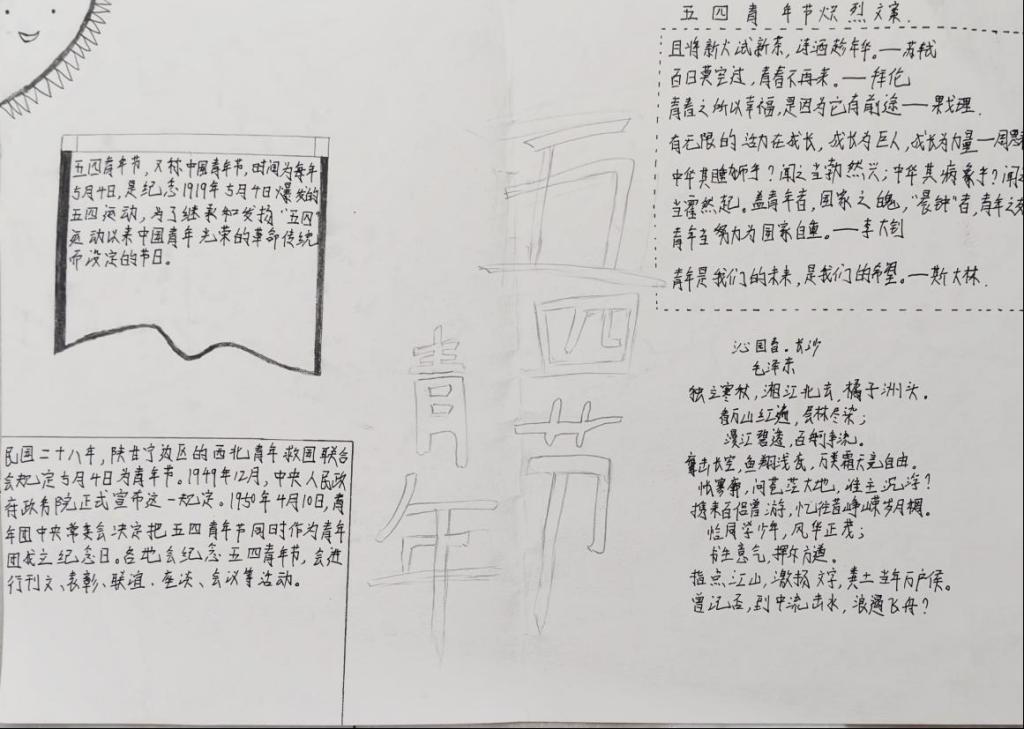 五四青年节
五四青年节，又称中国青年节，时间为每年
5月4日，是纪念1919年5月4日爆发的
五四运动，为了继承和发扬“五四”
运动以来中国青年光荣的革命传统
而设定的节日。
民国二十八年，陕甘宁边区的西北青年救国联合
会规定5月4日为青年节。1949年12月，中央人民政
府政务院正式宣布这一规定。1950年4月10日，青
年团中央常委会决定把五四青年节同时作为青年
团成立纪念日。各地会纪念五四青年节，会进
行刊文、表彰、联谊、座谈、会议等活动。
五四青年节炽烈文案.
且将新火试新茶，诗酒趁年华。—苏轼
百日莫空过，青春不再来。—拜伦
青春之所以幸福，是因为它有前途——果戈理.
有无限的活力在成长，成长为巨人，成长为力量—周恩
中华其睡狮乎？闻之当勃然兴；中华其病象乎？闻
当霍然起。盖青年者，国家之魂，“晨钟”者，青年之
青年当努力为国家自重。—李大钊
青年是我们的未来，是我们的希望。—斯大林.
沁园春.长沙
毛泽东
独立寒秋，湘江北去，橘子洲头。
看万山红遍，层林尽染；
漫江碧透，百舸争流。
鹰击长空，鱼翔浅底，万类霜天竞自由。
怅寥廓，问苍茫大地，谁主沉浮？
携来百侣曾游，忆往昔峥嵘岁月稠。
恰同学少年，风华正茂；
书生意气，挥斥方遒。
指点江山，激扬文字，粪土当年万户侯。
曾记否，到中流击水，浪遏飞舟？